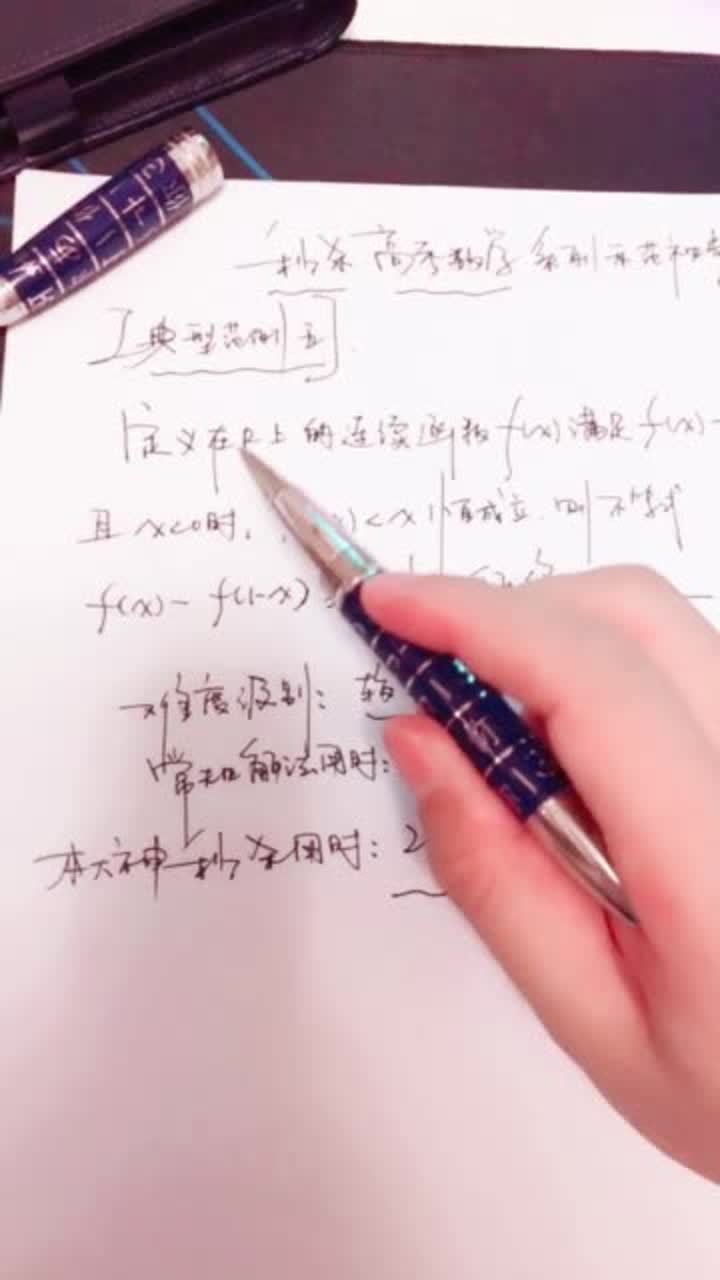 一秒杀高考数学系列示范和
[典型范例五]
定义在R上的连续函数f(x)满足f(x)-
且x<0时, )<x恒成立.则不等式
f(x)-f(1-x)
难度级别: 较
常规解法用时:
本大神一秒杀用时: 2